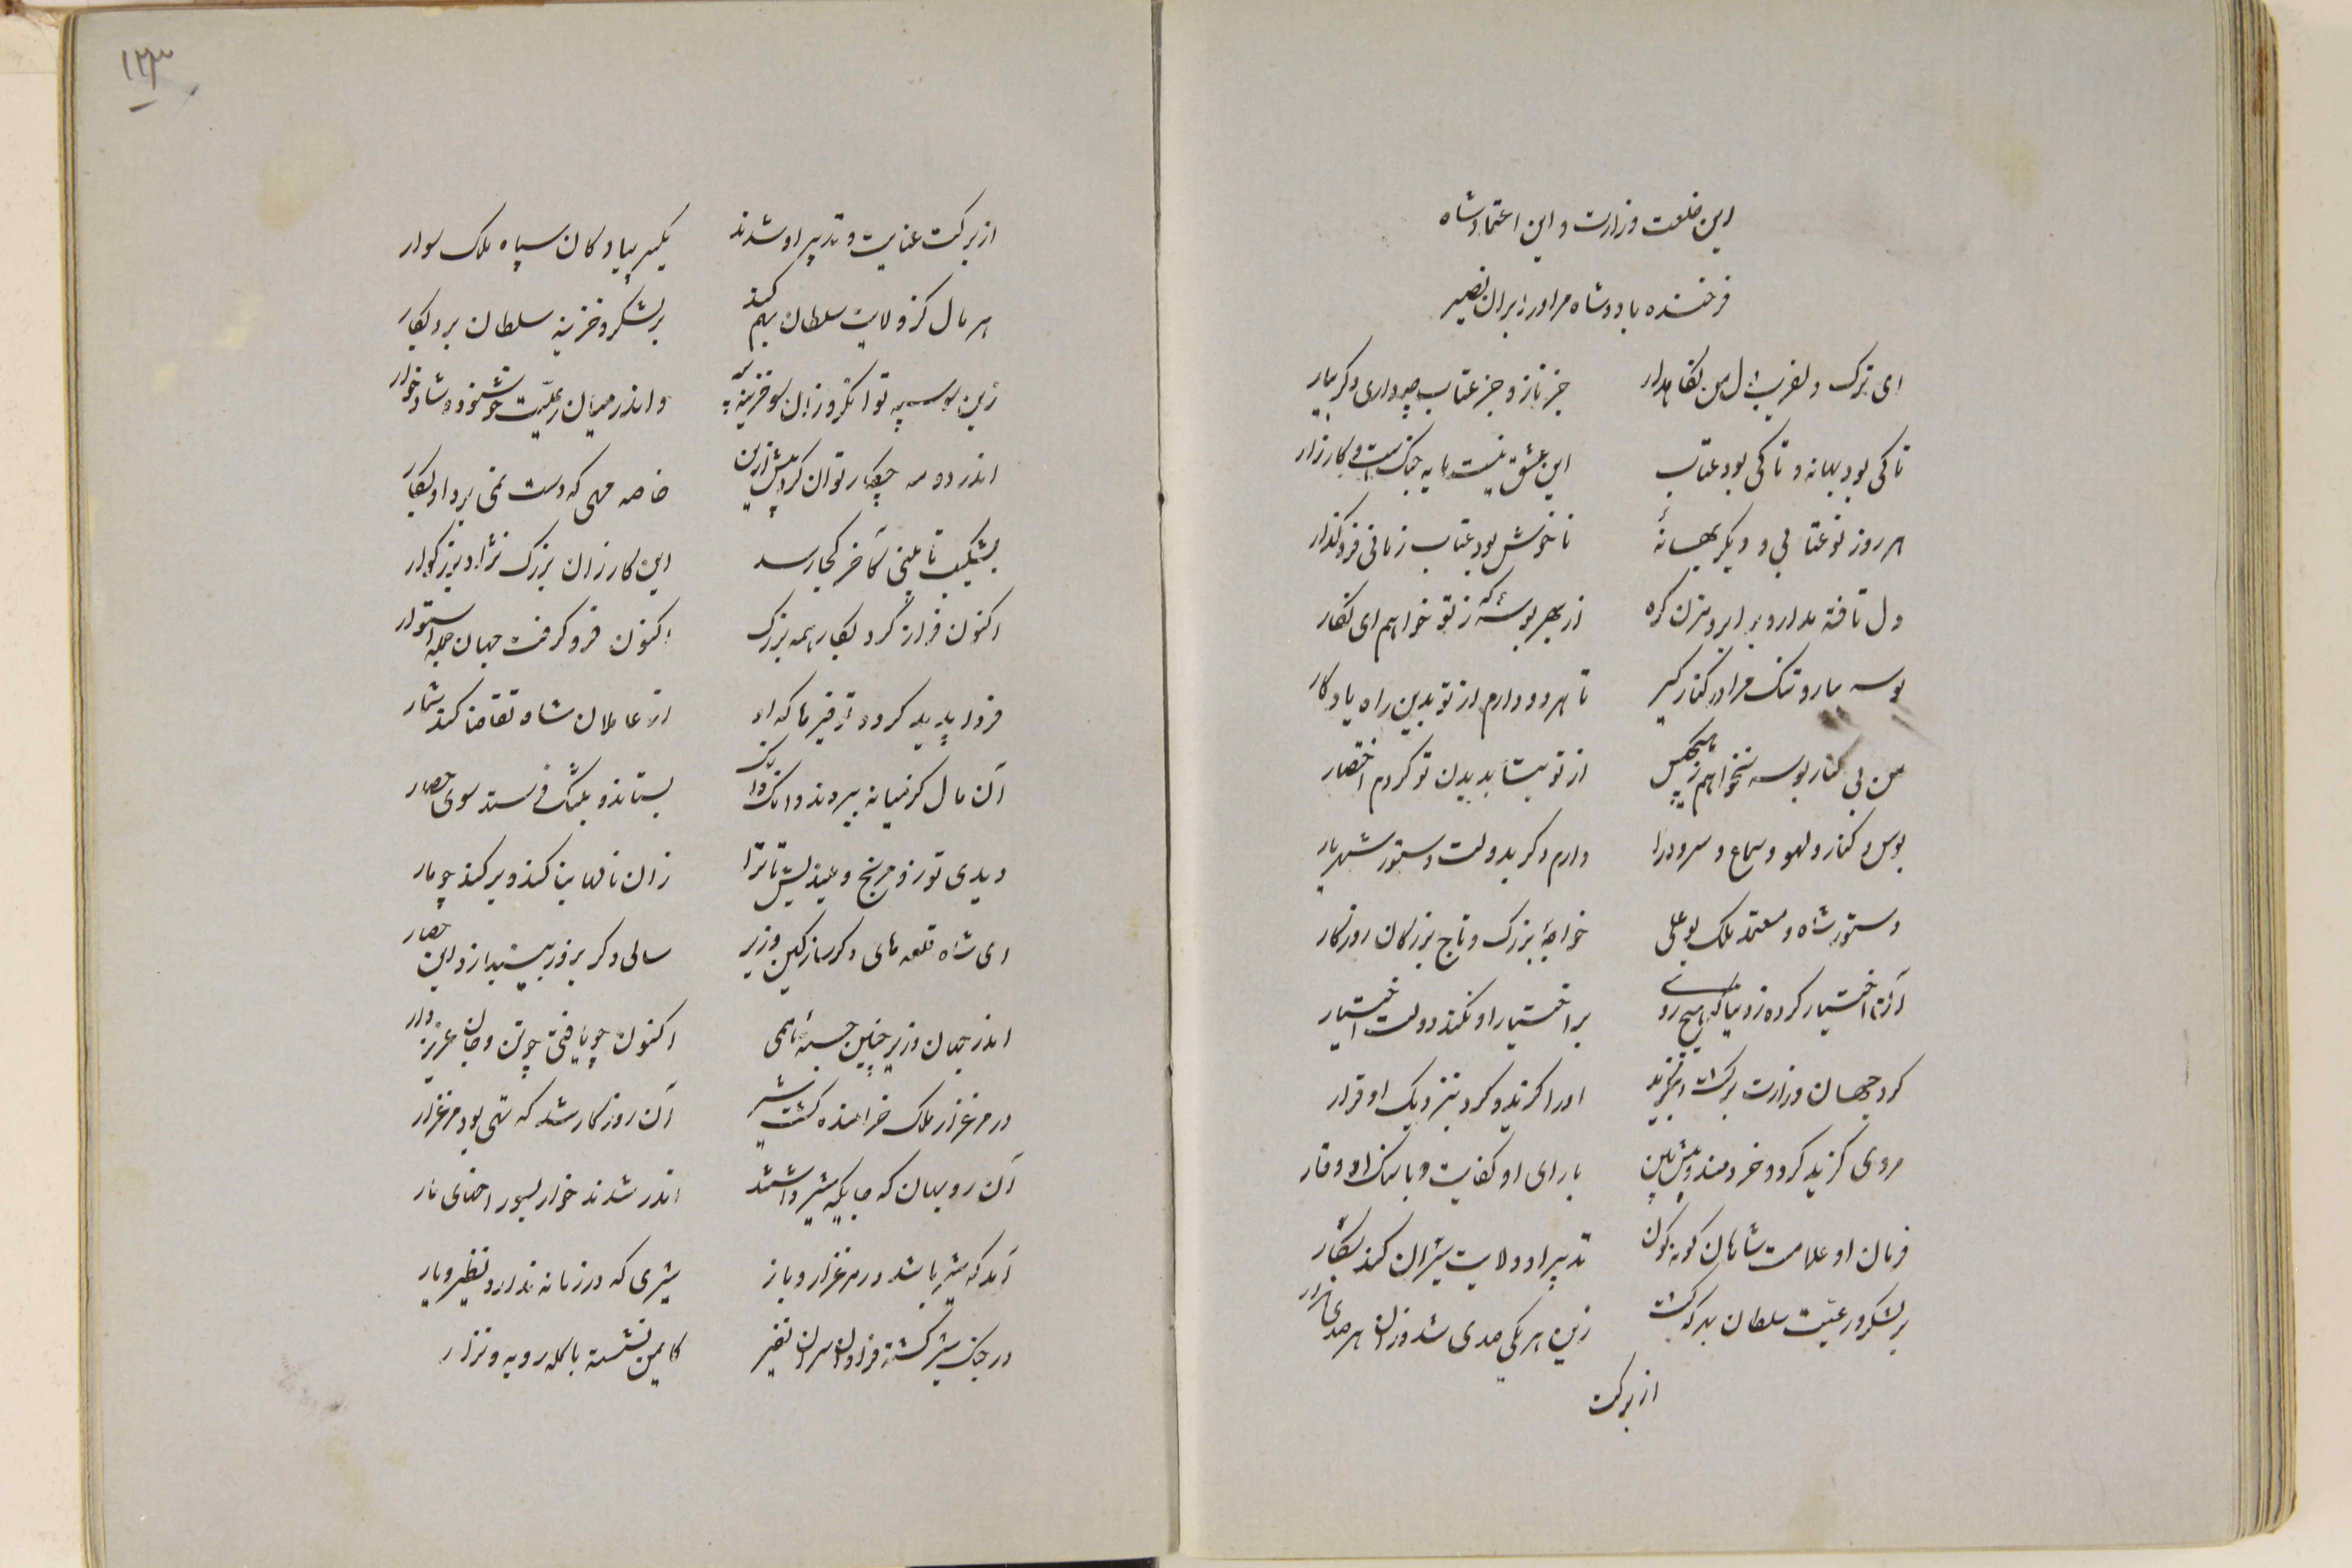 این خلعت وزارت و این اعتماد شاه
فرخنده باد و شاه مر او را بر آن نصیر
ای ترک دلفریب دل من نگاهدار جز ناز و جز عتاب چه داری دگر بیار
تا کی بود بهانه و تا کی بود عتاب این عشق نیست مایه جنگ است و کارزار
هر روز نو عتابی و دیگر بهانهٔ ناخوش بود عتاب زمانی فرو گذار
دل تافته مدار و بر ابرو مزن گره از بهر بوسهٔ که ز تو خواهم ای نگار
بوسه بیار و تنگ مرا در کنار گیر تا هر دو دارم از تو بدین راه یادگار
من بی کنار بوسه نخواهم ز هیچکس از تو بدیدن تو کردم اختصار
بوس و کنار و لهو و سماع و سرود را دارم دگر بدولت دستور شهریار
دستور شاه و معتمد ملک بوعلی خواجهٔ بزرگ و تاج بزرگان روزگار
اختیار کرده ز دنیا که هیچ رو بر اختیار او نکند دولت اختیار
گرد جهان وزارت برگشت و او را گزید و کرد بنزدیک او قرار
مردی گزید کرد و خردمند و پیش بین با رای او کفایت و با سنگ او وقار
فرمان او علامت شاهان کند نگون تدبیر او ولایت شیران کند شکار
بر لشکر و رعیت سلطان بدو گشت زین هر یکی صدی شد و زان هر صدی هزار
از برکت
۱۲۳
از برکت عنایت و تدبیر او شدند یکسر پیادگان سپاه ملک سوار
هر مال کز ولایت سلطان بهم کند بر لشکر و خزینه سلطان برد بکار
زین سو سپه توانگر و زان سو خزینه پر و اندر میان رعیت خشنود و شاد خوار
اندر دو مه چکار توان کرد بیش ازین خاصه مهی که دست نمی برد او بکار
بشکیب تا ببینی کآخر کجا رسد این کار زان بزرگ نژاد بزرگوار
اکنون فراز کرد بکار همه بزرگ اکنون فرو گرفت جهان جمله استوار
فردا پدید گردد توفیرها که او از عاملان شاه تقاضا کند شمار
آن مال کز میانه ببردند دانگ دانگ بستاند و بتنگ فرستد سوی حصار
دیدی تو رنج و تا ترا زان مالها بنا کند و بر کند چو پار
ای شاه قلعه های دگر ساز کاین وزیر سالی دگر بزر بینبازد این حصار
اندر جهان وزیر چنین جستهٔ همی اکنون چو یافتی چو تن و جان عزیز دار
در مرغزار ملک خرامنده گشت شیر آن روزگار شد که تهی بود مرغزار
آن روبهان که جایگه شیر داشتند اندر شدند خوار بسوراخهای مار
آمد که شیر باشد در مرغزار و باز شیری که در زمانه ندارد نظیر و یار
در جنگ شیر گشته فراوان سران نفیر کایمن نشسته با گله روبه و نزار